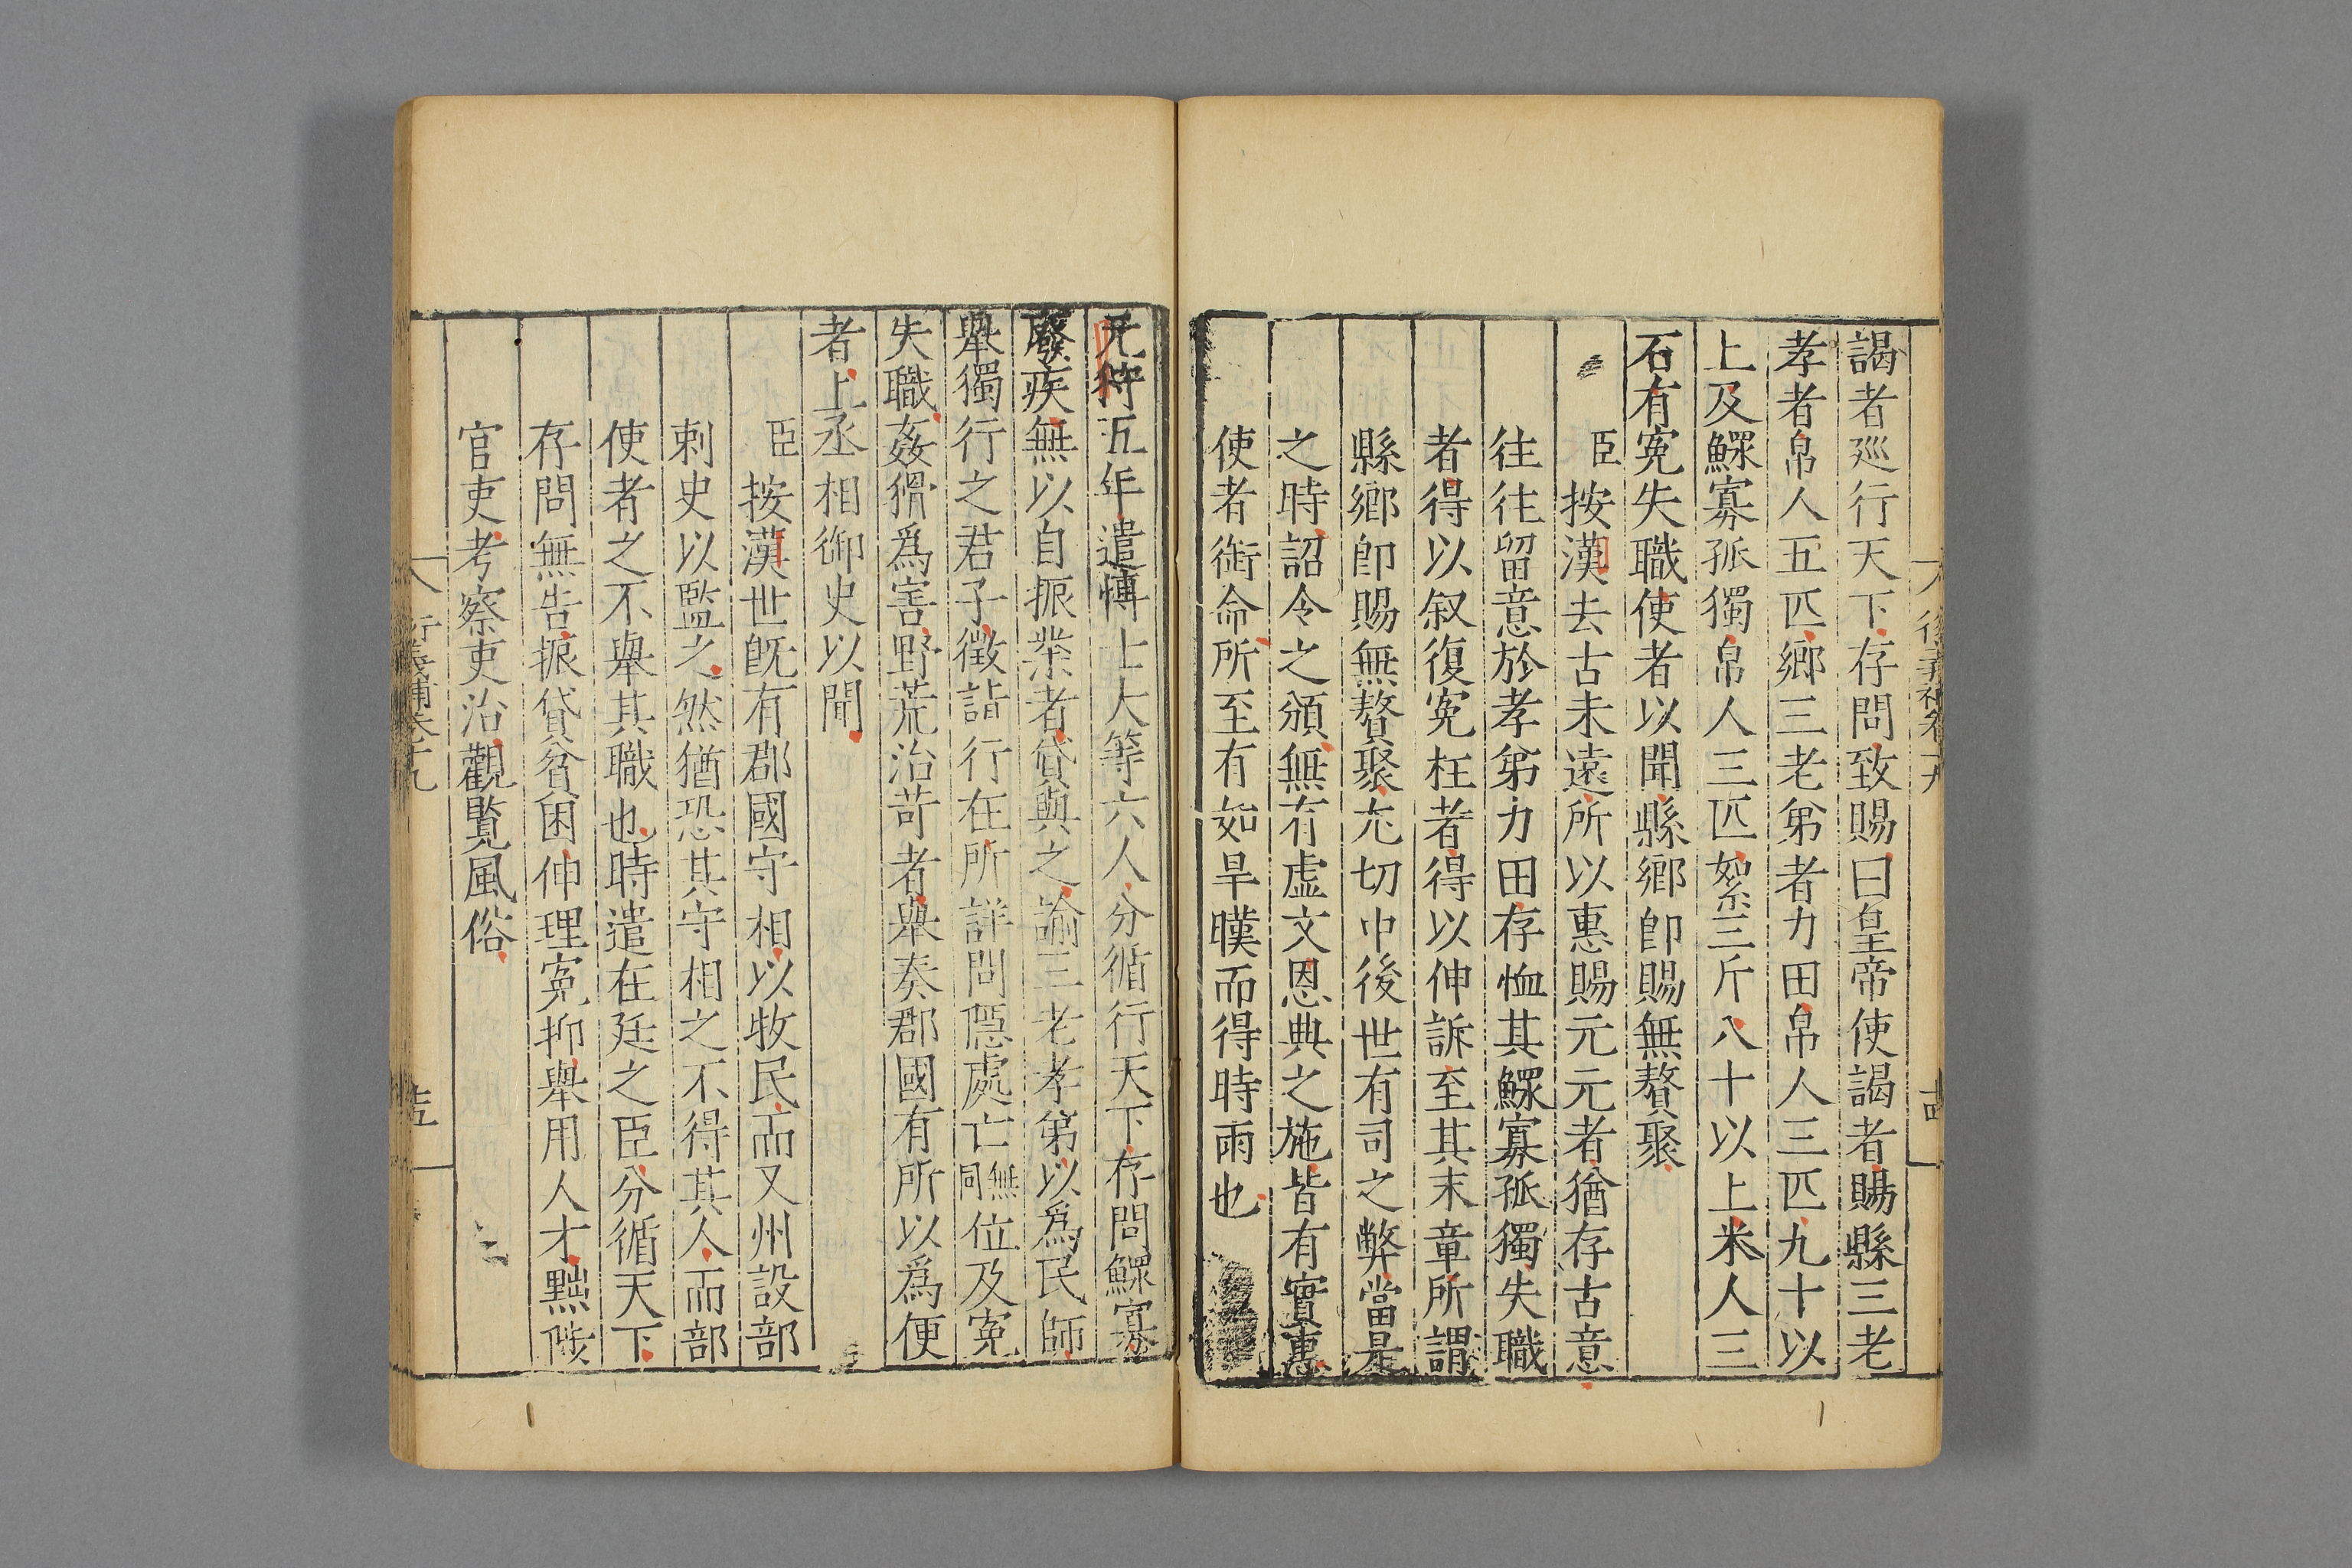 謁者廵行天下存問致賜曰皇帝使謁者賜縣三老
孝者帛人五匹鄉三老弟者力田帛人三匹九十以
上及鰥寡孤獨帛人三匹絮三斤八十以上米人三
石有冤失職使者以聞縣鄉卽賜無贅聚
臣按漢去古未遠所以惠賜元元者猶存古意
往往留意於孝弟力田存恤其鰥寡孤獨失職
者得以叙復冤枉者得以伸訴至其末章所謂
縣鄉卽賜無贅聚尤切中後世有司之弊當是
之時詔令之頒無有虛文恩典之施皆有實惠
使者銜命所至有如旱暵而得時雨也
元狩五年遣博士大等六人分循行天下存問鰥寡
廢疾無以自振業者貸與之諭三老孝弟以爲民師
舉獨行之君子徵詣行在所詳問隱處亡無同位及冤
失職姦猾爲害野荒治苛者舉奏郡國有所以爲便
者上丞相御史以聞
臣按漢世旣有郡國守相以牧民而又州設部
刺史以監之然猶恐其守相之不得其人而部
使者之不舉其職也時遣在廷之臣分循天下
存問無告振貸貧困伸理冤抑舉用人才黜陟
官吏考察吏治觀覽風俗